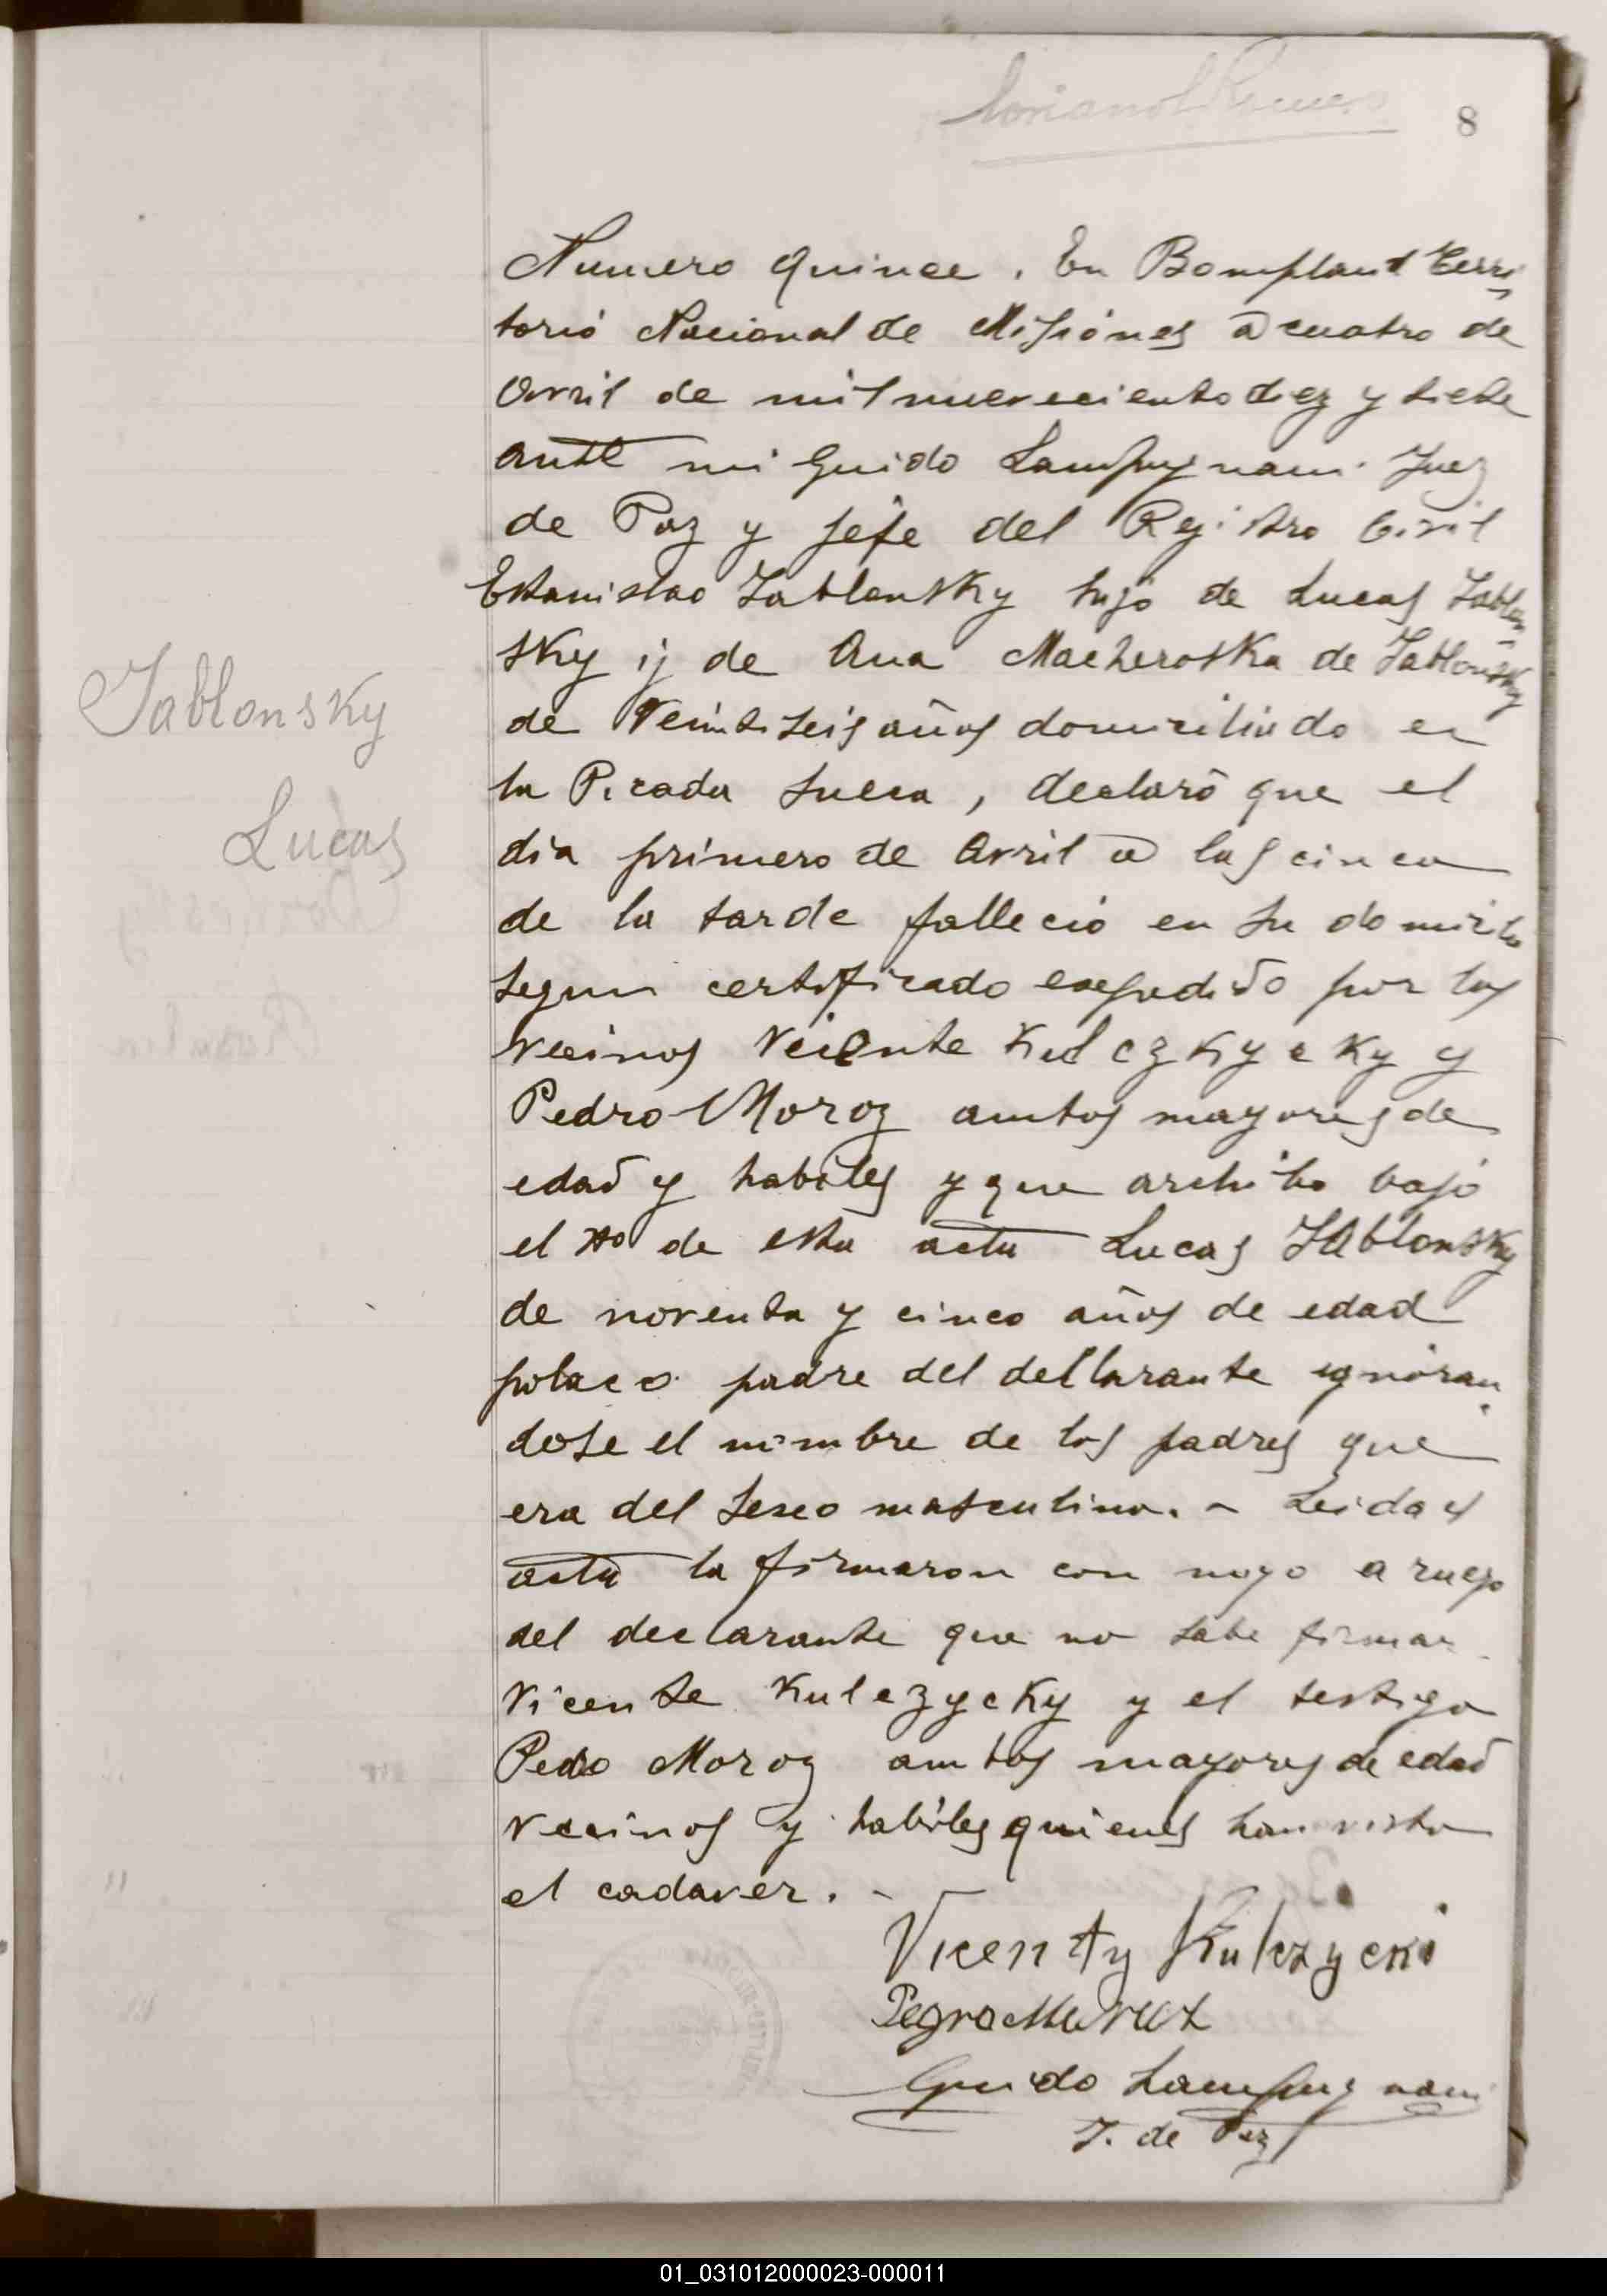 8
Numero quince. En Bompland Terri-
torio Nacional de Misiónes a cuatro de
Avril de mil nuevecientodiez y siete
ante mi Guido Lampugnani Juez
de Paz y jefe del Rejistro Civil
Estanislao Jablonsky hijo de Lucas Jablon-
sky y de Ana Macheroska de Jablonsky
de Veintiseis años domiciliado en
la Picada Sueca, declaró que el
dia primero de Avril a las cinco
de la tarde falleció en su domicilio
segun certificado espedido por los
vecinos Vicente Kulczkycky y
Pedro Moroz ambos mayores de
edad y habiles y que archibo bajo
el No de esta acta Lucas JAblonsky
de noventa y cinco años de edad
polaco padre del declarante ignoran-
dose el nombre de los padres que
era del sexo masculino. - Leida el
acta la firmaron con migo a ruego
del declarante que no sabe firmar
Vicente Kulczycky y el testigo
Pedro Moroz ambos mayores de edad
vecinos y habiles quienes han visto
el cadaver. -
Jablonsky
Lucas
Vicenty Kulczycki
Guido Lampugnani
J. de Paz
01_031012000023-000011